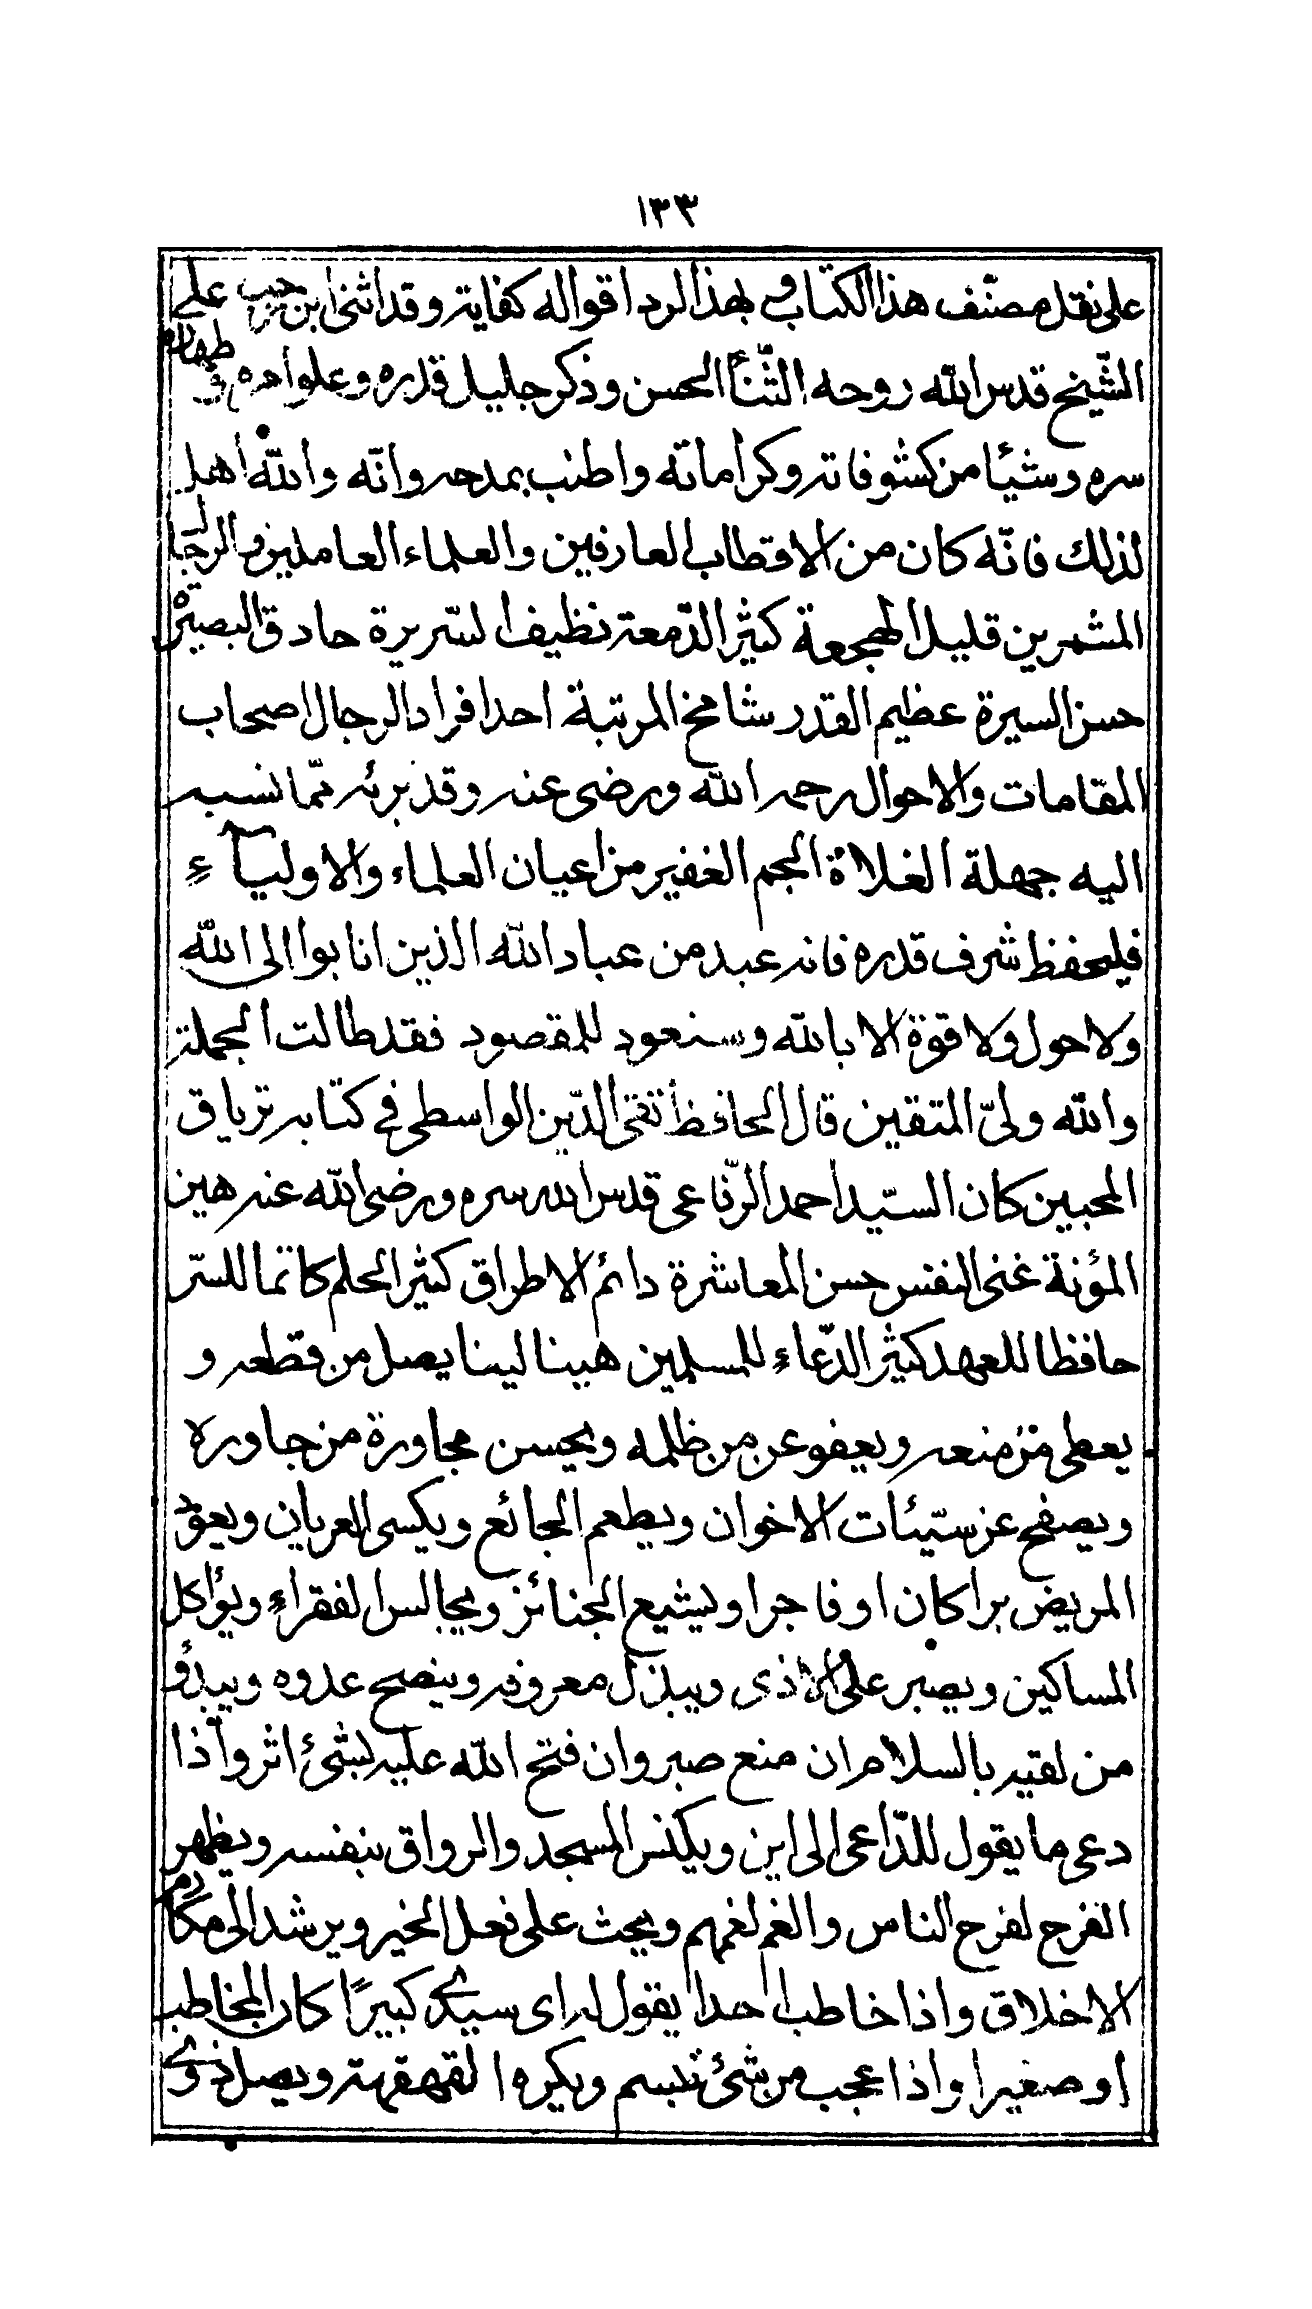 ١٣٣
على نقل مصنّف هذا الكتاب وفى بهذا الرد اقواله كفاية وقد اثنى ابن رجب على
الشّيخ قدس الله روحه الثّنأ الحسن وذكر جليل قدره وعلو امره وطهارة
سره وشيئا من كشوفاته وكراماته واطنب بمدحه وانّه والله اهل
لذلك فانّه كان من الاقطاب العارفين والعلماء العاملين والرجال
المشمرين قليل الهجعة كثير الدّمعة نظيف السّريرة حاد ق البصيرة
حسن السيرة عظيم القدر شامخ المرتبة احد افراد الرجال اصحاب
المقامات والاحوال رحمه الله ورضى عنه وقد برئه ممّا نسبه
اليه جهلة الغلاة الجم الغفير من اعيان العلماء والاوليآء
فليحفظ شرف قدره فانه عبد من عباد الله الذين انابوا الى الله
ولا حول ولا قوة الا بالله وسنعود للمقصود فقد طالت الجملة
والله ولىّ المتقين قال الحافظ تقى الدّين الواسطى فى كتابه ترياق
المحبين كان السّيد احمد الرّفاعى قدس الله سره ورضى الله عنه هين
المؤنة غنى النفس حسن المعاشرة دائم الاطراق كثير الحلم كاتما للسّر
حافظا للعهد كثير الدّعاء للمسلمين هينا لينا يصل من قطعه و
يعطى من منعه ويعفو عن من ظلمه ويحسن مجاورة من جاوره
ويصفح عن سيّئات الاخوان ويطعم الجائع ويكسى العريان ويعود
المريض برا كان او فاجرا ويشيع الجنائز ويجالس الفقراء ويؤاكل
المساكين ويصبر على الاذى ويبذل معروفه وينصح عدوه ويبدؤ
من لقيه بالسلام ان منع صبر وان فتح الله عليه بشئ اثر واذا
دعى ما يقول للدّاعى الى اين ويكنس المسجد والرواق بنفسه ويظهر
الفرح لفرح الناس والغم لغمهم ويحث على فعل الخير ويرشد الى مكارم
الاخلاق واذا خاطب احدا يقول له اى سيدى كبيرًا كان المخاطب
او صغيرا واذا عجب من شئ تبسم ويكره القهقهة ويصل ذوى